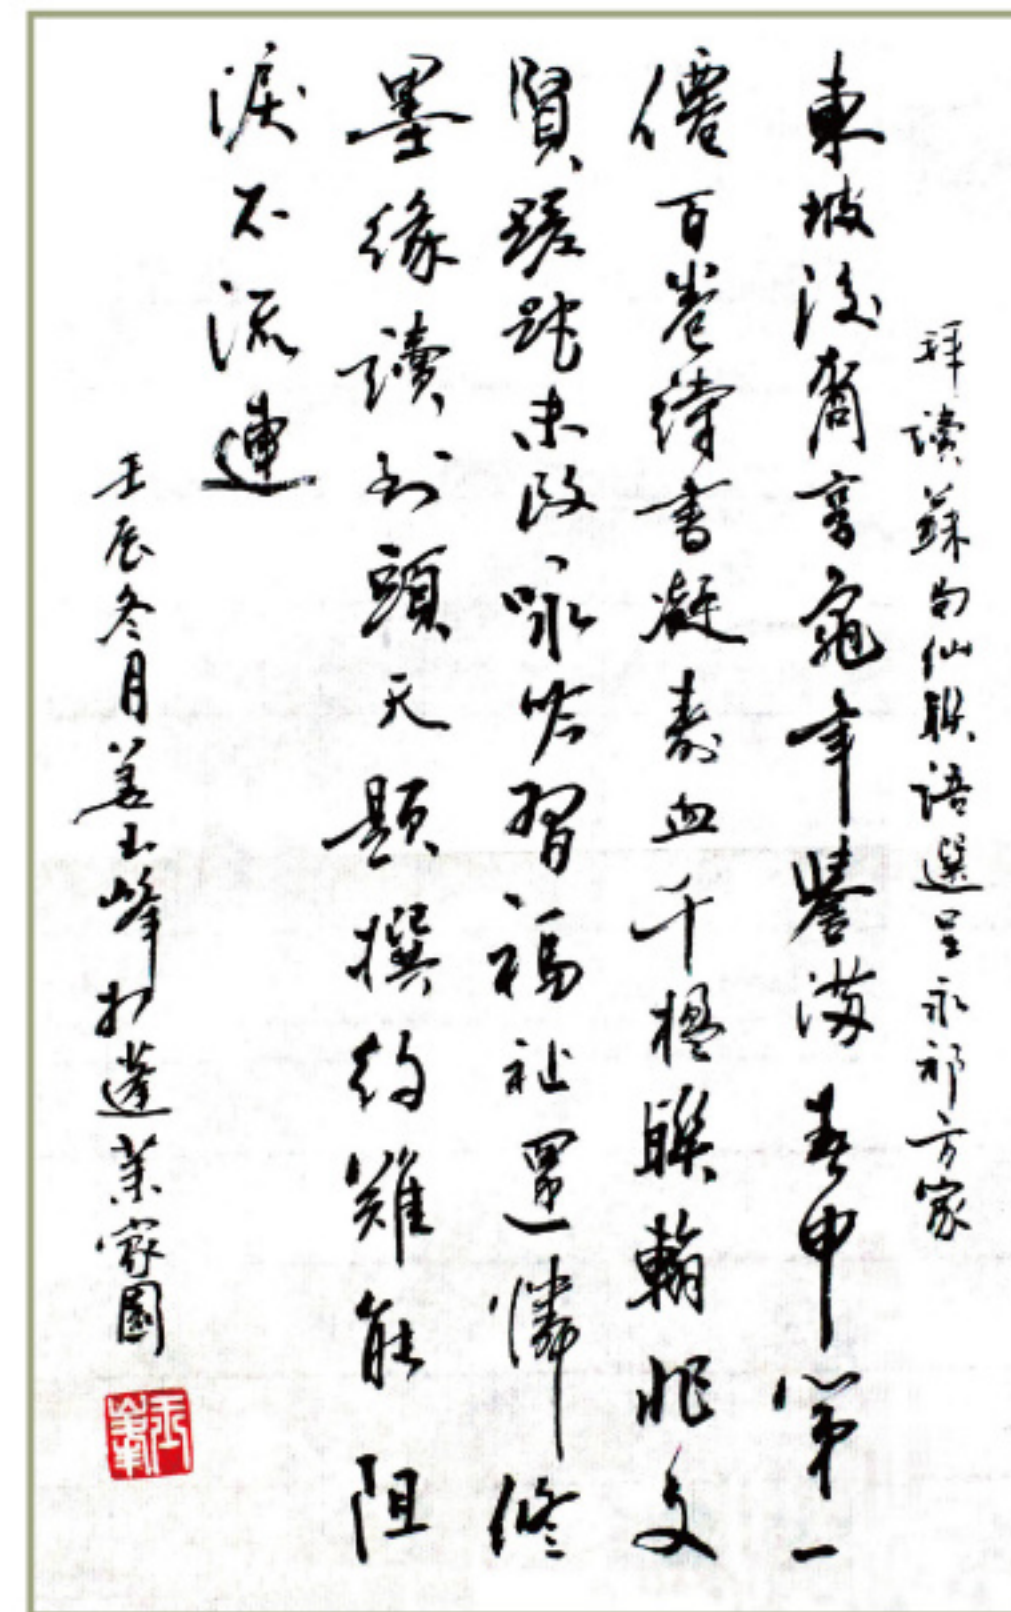 拜讀蘇句仙聯語選呈永祁方家
東坡後裔享龜年譽滿春申第一
僊百卷詩書凝血千楹聯翰文
賢蹉跎未改咏吟習福祉還憐修
墨緣讀到頭天題撰約難能阻
淚不流連
壬辰冬月姜玉峰於蓬萊家園
玉峯